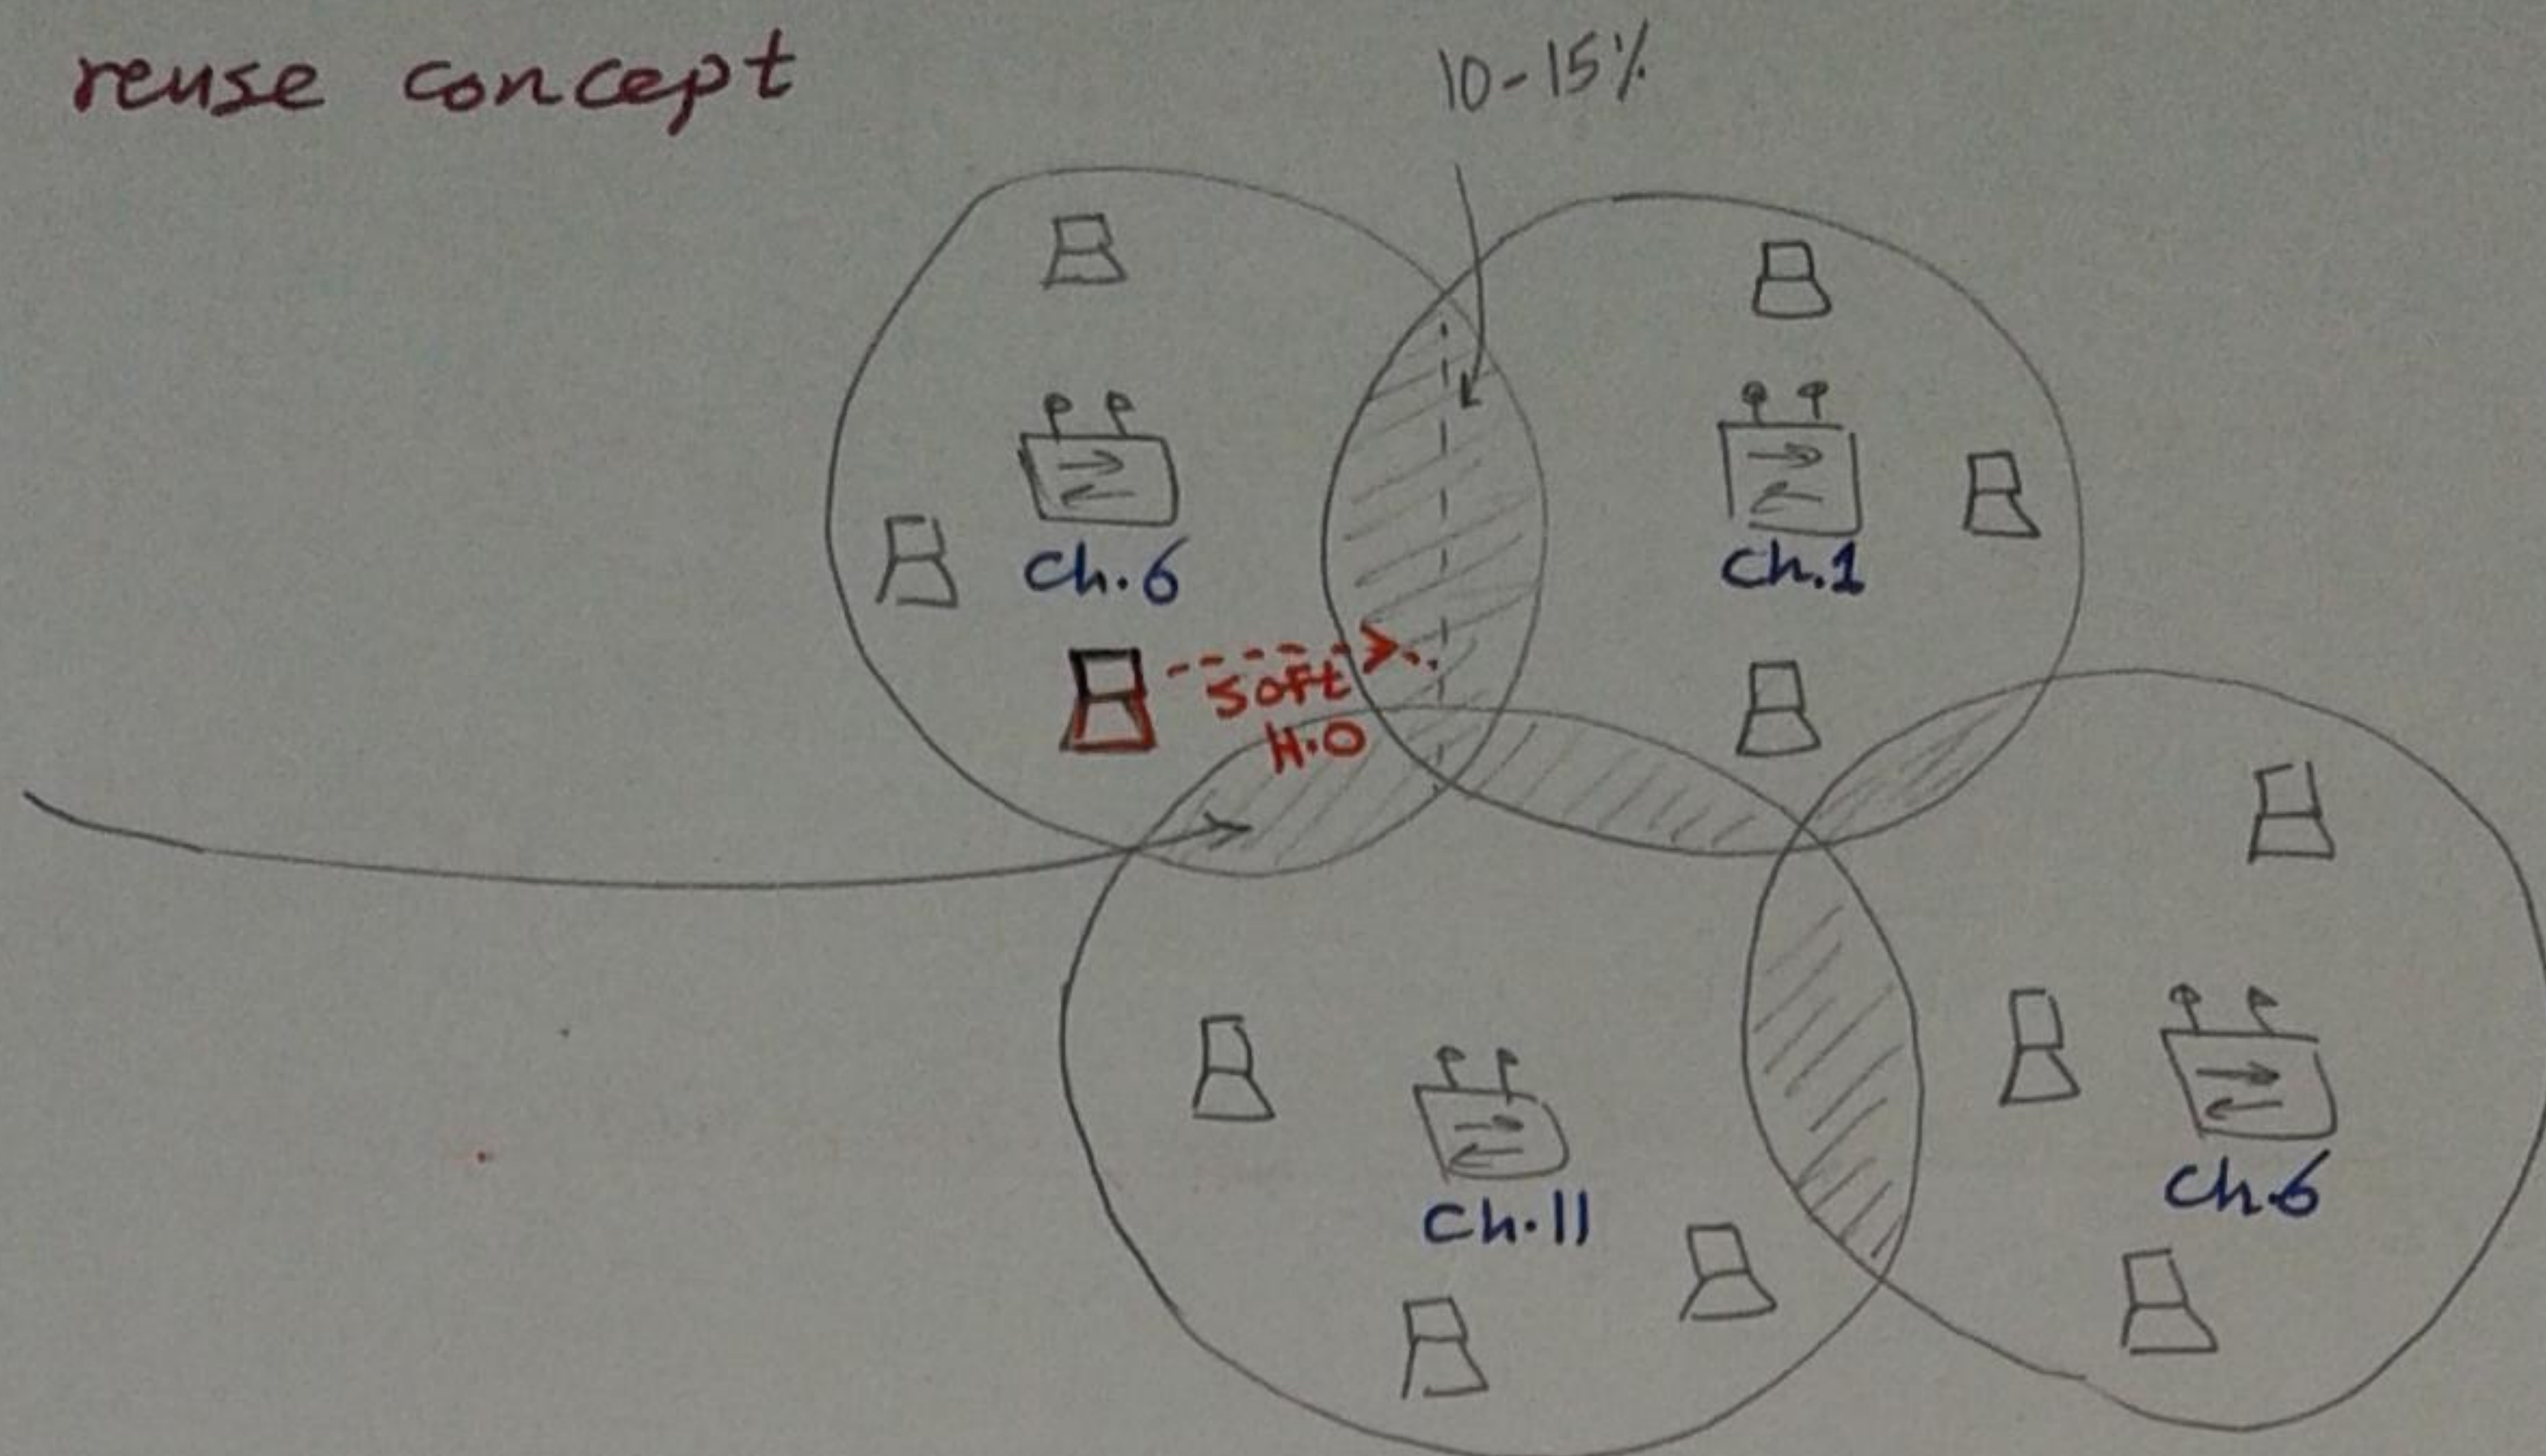 reuse concept
10-15%
Ch.6
Ch.1
Soft
H.O
Ch.11
Ch.6